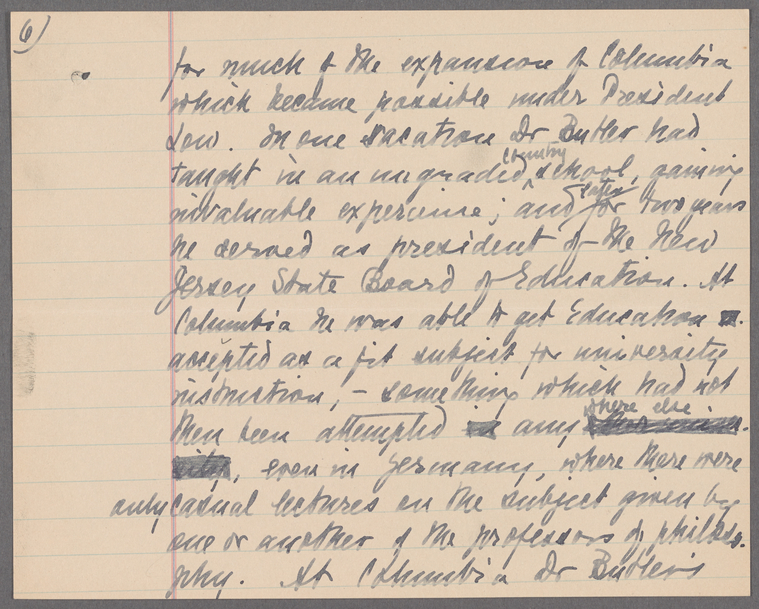 6)
for much of the expansion of Columbia
which became possible under President
Low. In one vacation Dr Butler had
taught in an ungraded country school, gaining
invaluable experience; and later for two years
he served as president of the New
Jersey State Board of Education. At
Columbia he was able to get Education
accepted as a fit subject for university
instruction, – something which had not
then been attempted any where else
, even in Germany, where there were
only casual lectures on the subject given by
one or another of the professors of philoso-
phy. At Columbia Dr Butler's